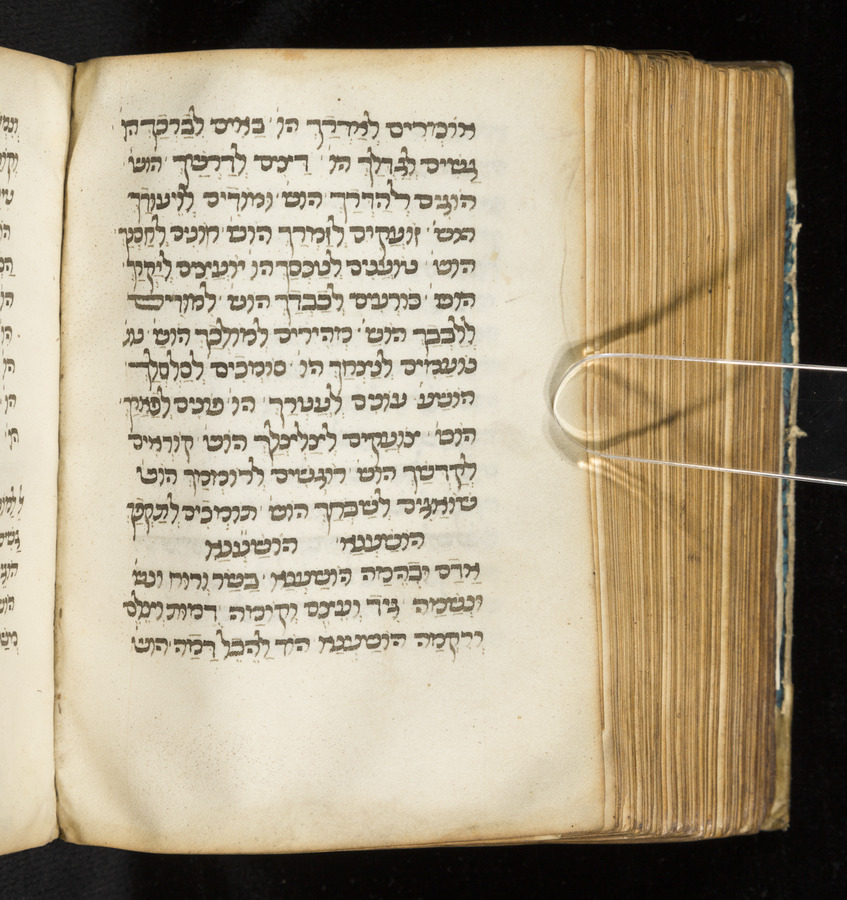 אומרים לאדרך הו׳ באים לברכך הו׳
גשים לגדלך הו׳ דיכים לדרשך הוש׳
הוגים להדרך הוש׳ ומודים לויעודך
הוש׳ זועקים לזמרך הוש׳ חונים לחסנך
הוש׳ טוענים לטכסך הו׳ יועצים ליקרך
הוש׳ כורעים לכבדך הוש׳ למודים
ללבבך הוש׳ מהירים למולכך הוש׳
נועמים לנצחך הו׳ סומכים לסלסלך
הושע׳ עונים לעטרך הו׳ פונים לפארך
הוש׳ צועקים לצלצלך הוש׳ קוראים
לקדשך הוש׳ רוגשים לרוממך הוש׳
שואגים לשבחך הוש׳ תומכים לתקפך
הושענא הושענא
אדם ובהמה הושענא בשר ורוח
ונשמה גיד ועצם וקרומה דמות וצלם
ורקמה הושענא הוד להבל דמה הוש׳